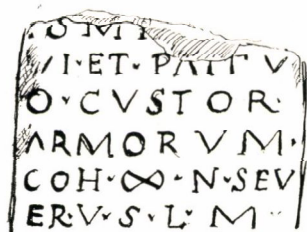 · S M I
V I · ET · P A T F V
O · C V S T O R ·
A R M O R V M ·
C O H · ∞ · N · S E V
E R · V · S · L · M ··